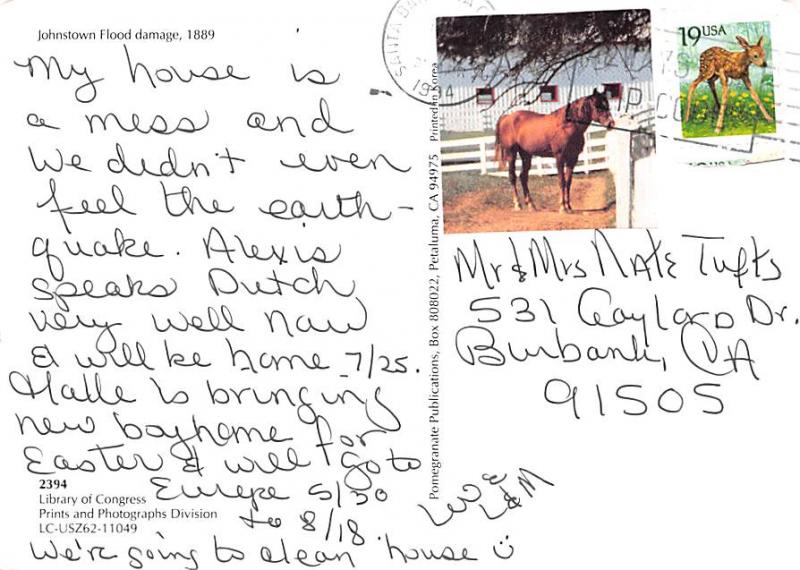 Johnstown Flood damage, 1889
My house is
a mess and
we didn't even
feel the earth-
quake. Alexis
speaks Dutch
very well now
& will be home 7/25.
Halle is bringing
new boy home for
Easter & will go to
Europe 5/30
to 8/18.
We're going to clean house
Love
L&M
2394
Library of Congress
Prints and Photographs Division
LC-USZ62-11049
Pomegranate Publications, Box 808022, Petaluma, CA 94975 Printed in Korea
SANTA
19USA
Mr & Mrs Nate Tufts
531 Gaylord Dr.
Burbank, CA
91505